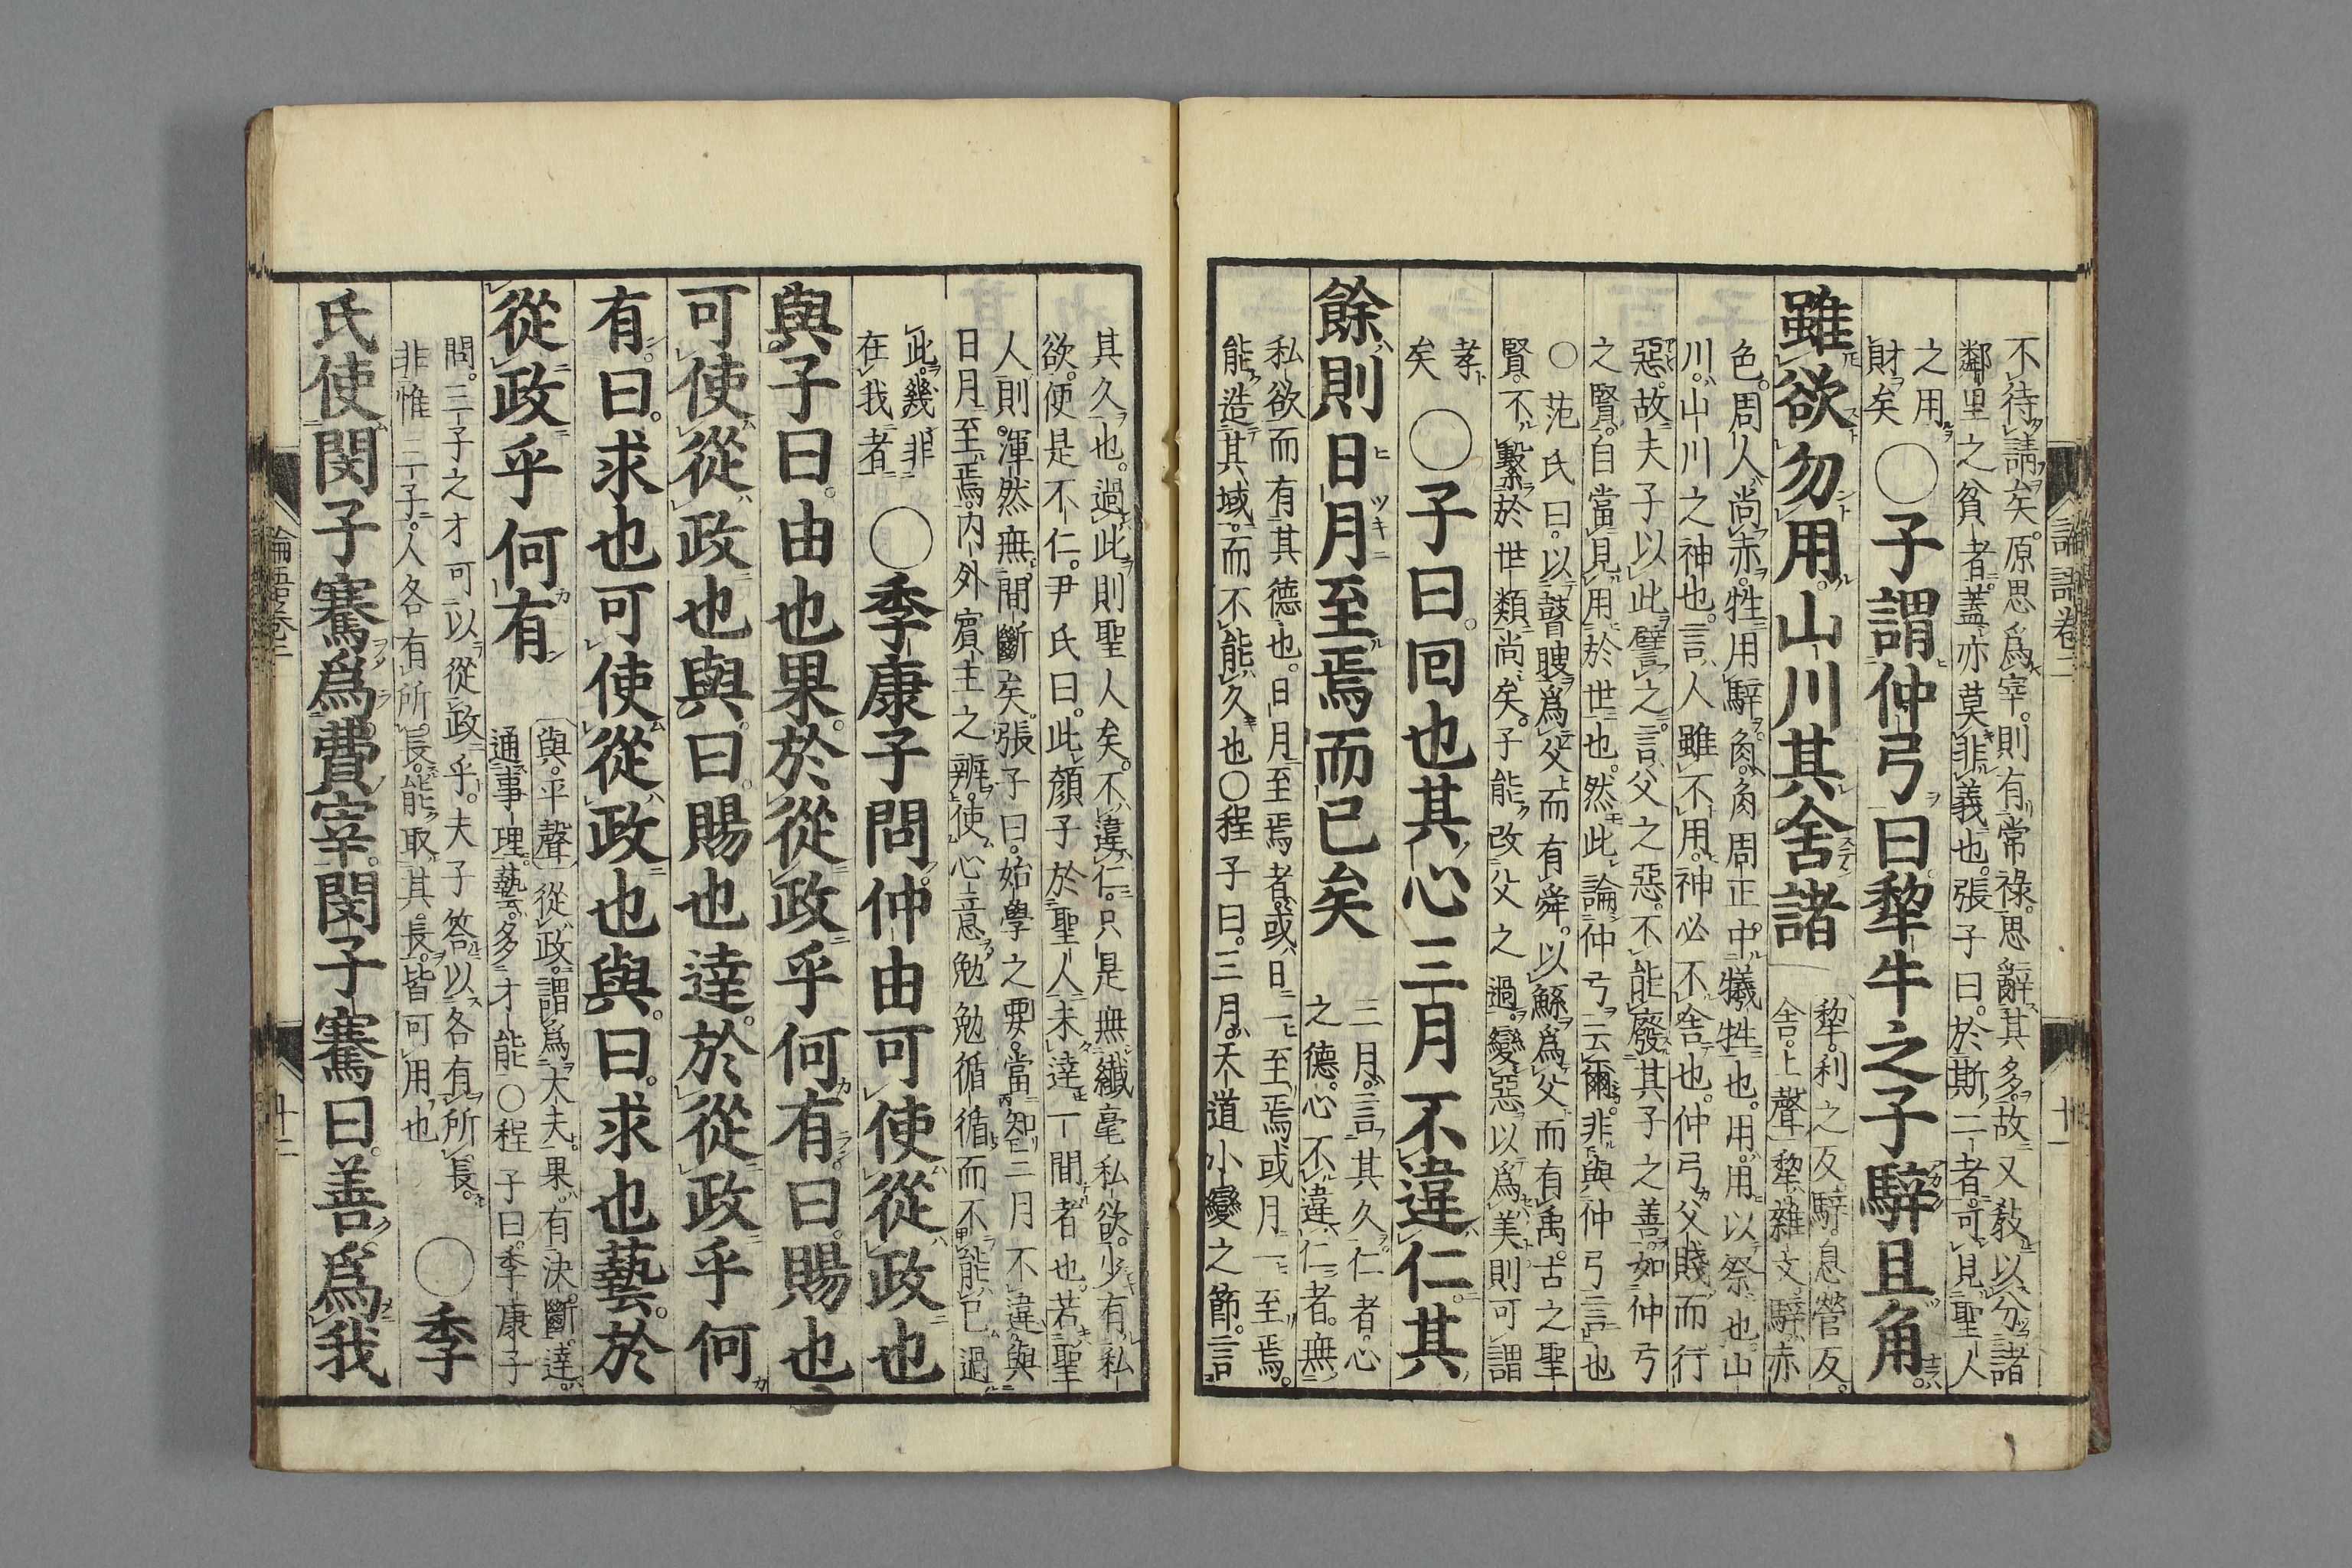 論語卷三
十一
不待請矣。原思爲宰。則有常祿。思辭其多。故又敎以分諸
鄰里之貧者。蓋亦莫非義也。張子曰。於斯二者。可見聖人
之用
財矣
○子謂仲弓曰犂牛之子騂且角。
雖欲勿用。山川其舍諸
犂。利之反。騂。息營反。
舍。上聲。犂。雜文。騂。赤
色。周人尚赤。牲用騂。角。角周正。中犧牲也。用。用以祭也。山
川。山川之神也。言。人雖不用。神必不舍也。仲弓父賤而行
惡。故夫子以此譬之。言父之惡。不能廢其子之善。如仲弓
之賢。自當見用於世也。然此論仲弓云爾。非與仲弓言也
○范氏曰。以瞽瞍爲父而有舜。以鯀爲父而有禹。古之聖
賢。不繫於世類尚矣。子能改父之過。變惡以爲美則可謂
孝
矣
○子曰。回也其心三月不違仁。其
餘則日月至焉而已矣
三月。言其久仁者。心
之德。心不違仁者。無
私欲而有其德也。日月至焉者。或日一至焉或月一至焉。
能造其域。而不能久也○程子曰。三月。天道小變之節。言
其久也。過此則聖人矣。不違仁。只是無纖毫私欲。少有私
欲。便是不仁。尹氏曰。此顏子於聖人未達一間者也。若聖
人則。渾然無間斷矣。張子曰。始學之要。當知三月不違與
日月至焉。內外賓主之辨。使心意勉勉循循而不能已。過
此。幾非
在我者
○季康子問。仲由可使從政也
與。子曰。由也果。於從政乎何有。曰。賜也
可使從政也與。曰。賜也達。於從政乎何
有。曰。求也可使從政也與。曰。求也藝。於
從政乎何有
與。平聲。從政。謂爲大夫。果。有決斷。達。
通事理。藝。多才能○程子曰。季康子
問。三子之才可以從政乎。夫子答以各有所長。
非惟三子。人各有所長。能取其長。皆可用也
○季
氏使閔子騫爲費宰。閔子騫曰。善爲我
論語卷三
十二